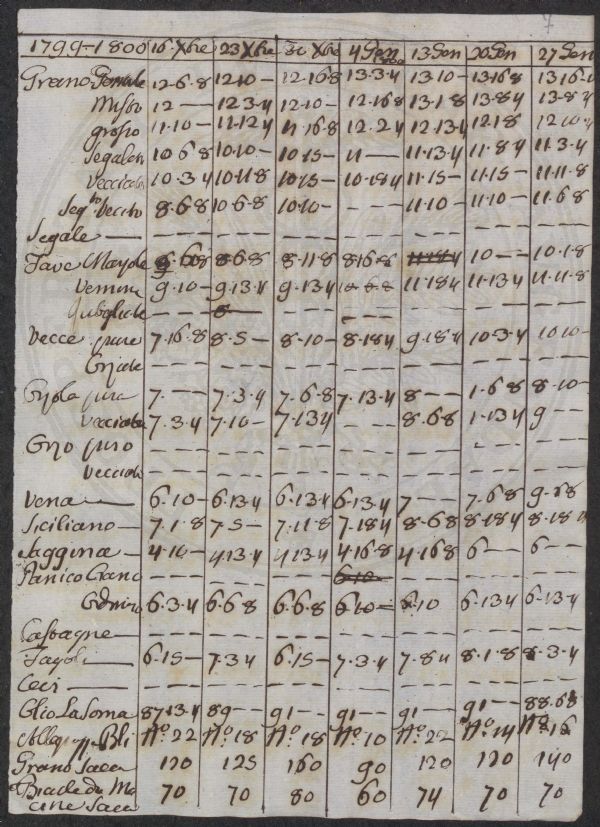 7
1799-1800 16·Xbre 23 Xbre 30 Xbre 4 Gen 13 Gen 20 Gen 27 Gen
Grano Gentile 12·6·8 12·10— 12·16·8 13·3·4 13·10— 13·16·8 13·16
Misto 12—— 12·3·4 12·10— 12·16·8 13·1·8 13·8·4 13·8·4
grosso 11·10— 11·12·4 11·16·8 12·2·4 12·13·4 12·18 12
Segalen 10·6·8 10·10— 10·15— 11—— 11·13·4 11·8·4 11·3·4
Vecciato 10·3·4 10·11·8 10·15— 10·18·4 11·15— 11·15— 11·11·8
Seg.to Veccito 8·6·8 10·6·8 10·10— — — — 11·10— 11·10— 11·6·8
Segale — — — — — — — — — — — — — — — — — — — — —
Fave 8·6·8 8·11·8 8·16·8 11·18·4 10—— 10·1·8
Vernine 9·10— 9·13·4 9·13·4 11·18·4 11·13·4 11·11·8
— — — — — — — — — — — — — — — — — —
Vecce pure 7·16·8 8·5— 8·10— 8·18·4 9·18·4 10·3·4 10·10—
— — — — — — — — — — — — — — — — — — — — —
pura 7·—— 7·3·4 7·6·8 7·13·4 8—— 1·6·8 8·10—
Vecciata 7·3·4 7·10— 7·13·4 — — — 8·6·8 1·13·4 9——
puro — — — — — — — — — — — — — — — — — — — — —
Vecciato — — — — — — — — — — — — — — — — — — — — —
Vena 6·10— 6·13·4 6·13·4 6·13·4 7—— 7·6·8 9·6·8
Siciliano 7·1·8 7·5— 7·11·8 7·18·4 8·6·8 8·18·4 8·18·4
Saggina 4·10— 4·13·4 4·13·4 4·16·8 4·16·8 6—— 6——
Panico — — — — — — — — — 6·10— — — — — — — — — —
6·3·4 6·6·8 6·6·8 6·10— 6·10 6·13·4 6·13·4
Castagne — — — — — — — — — — — — — — — — — — — — —
Fagoli 6·15— 7·3·4 6·15— 7·3·4 7·8·4 8·1·8 8·3·4
Ceci — — — — — — — — — — — — — — — — — — — — —
Olio La Soma 87·13·4 89—— 91—— 91—— 91—— 91—— 88·6·8
No. 22 No. 18 No. 18 No. 10 No. 22 No. 14 No. 16
Grano Sacca 120 125 160 90 120 120 140
Biade da Ma 70 70 80 60 74 70 70
cine Sacca